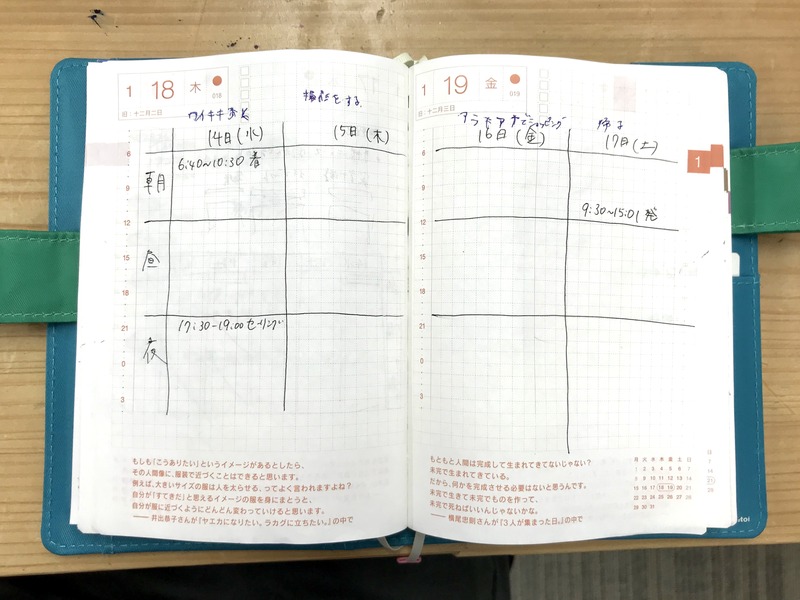 1 18 木
018
旧:十二月二日
ワイキキ散策
撮影をする
14日(水)
15日(木)
朝
6:40~10:30 着
昼
夜
17:30-19:00 セーリング
6
9
12
15
18
21
0
3
もしも「こうありたい」というイメージがあるとしたら、
その人間像に、服装で近づくことはできると思います。
例えば、大きいサイズの服は人を太らせる、ってよく言われますよね?
自分が「すてきだ」と思えるイメージの服を身にまとうと、
自分が服に近づくようにどんどん変わっていけると思います。
——井出恭子さんが『ヤエカになりたい。ラカグに立ちたい。』の中で
1 19 金
019
旧:十二月三日
アラモアナでショッピング
帰る
16日(金)
17日(土)
9:30~15:01 発
6
9
12
15
18
21
0
3
1
もともと人間は完成して生まれてきてないじゃない?
未完で生まれてきている。
だから、何かを完成させる必要はないと思うんです。
未完で生きて未完でものを作って、
未完で死ねばいいんじゃないかな。
——横尾忠則さんが『3人が集まった日。』の中で
月 火 水 木 金 土 日
1 2 3 4 5 6 7
8 9 10 11 12 13 14
15 16 17 18 19 20 21
22 23 24 25 26 27 28
29 30 31